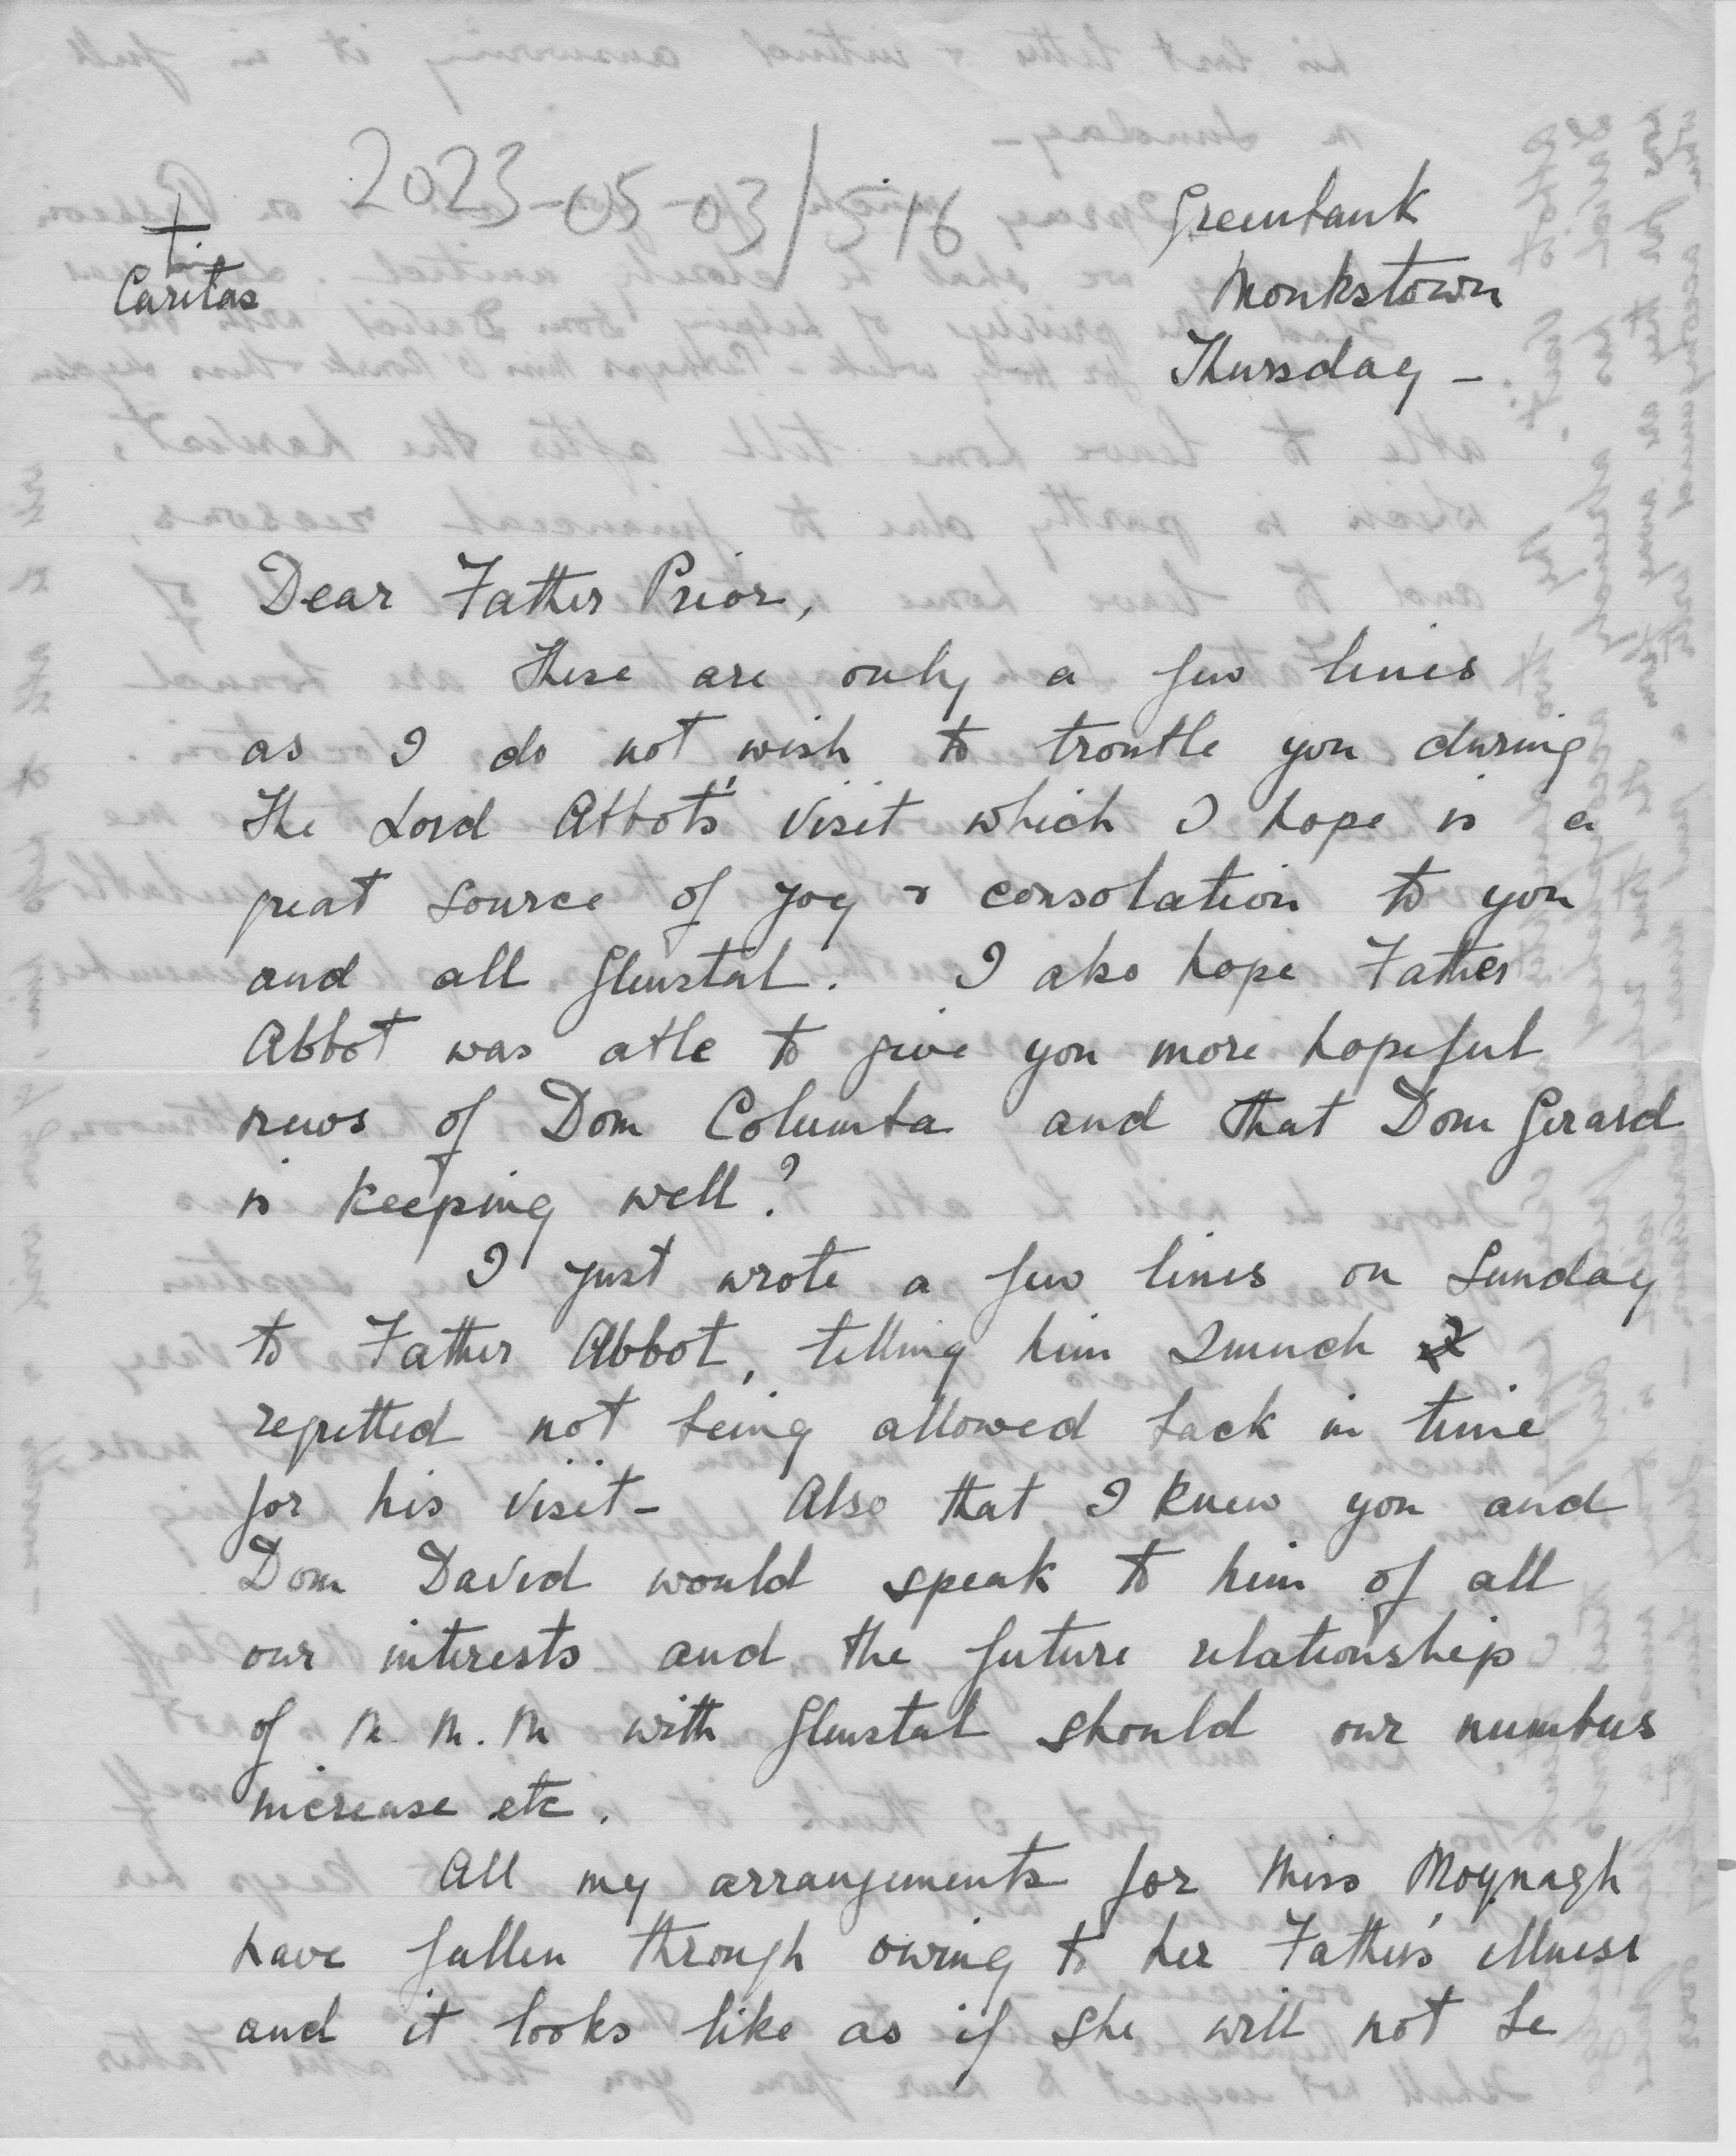 2023-05-03/516
+
Caritas
Greenbank
Monkstown
Thursday -
Dear Father Prior,
These are only a few lines
as I do not wish to trouble you during
the Lord Abbot's visit which I hope is a
great source of joy & consolation to you
and all Glenstal. I also hope Father
Abbot was able to give you more hopeful
news of Dom Columba and that Dom Gerard
is keeping well?
I just wrote a few lines on Sunday
to Father Abbot, telling him I much
regretted not being allowed back in time
for his visit - Also that I knew you and
Dom David would speak to him of all
our interests and the future relationship
of M. M. M with Glenstal should our numbers
increase etc.
All my arrangements for Miss Moynagh
have fallen through owing to her Father's illness
and it looks like as if she will not be